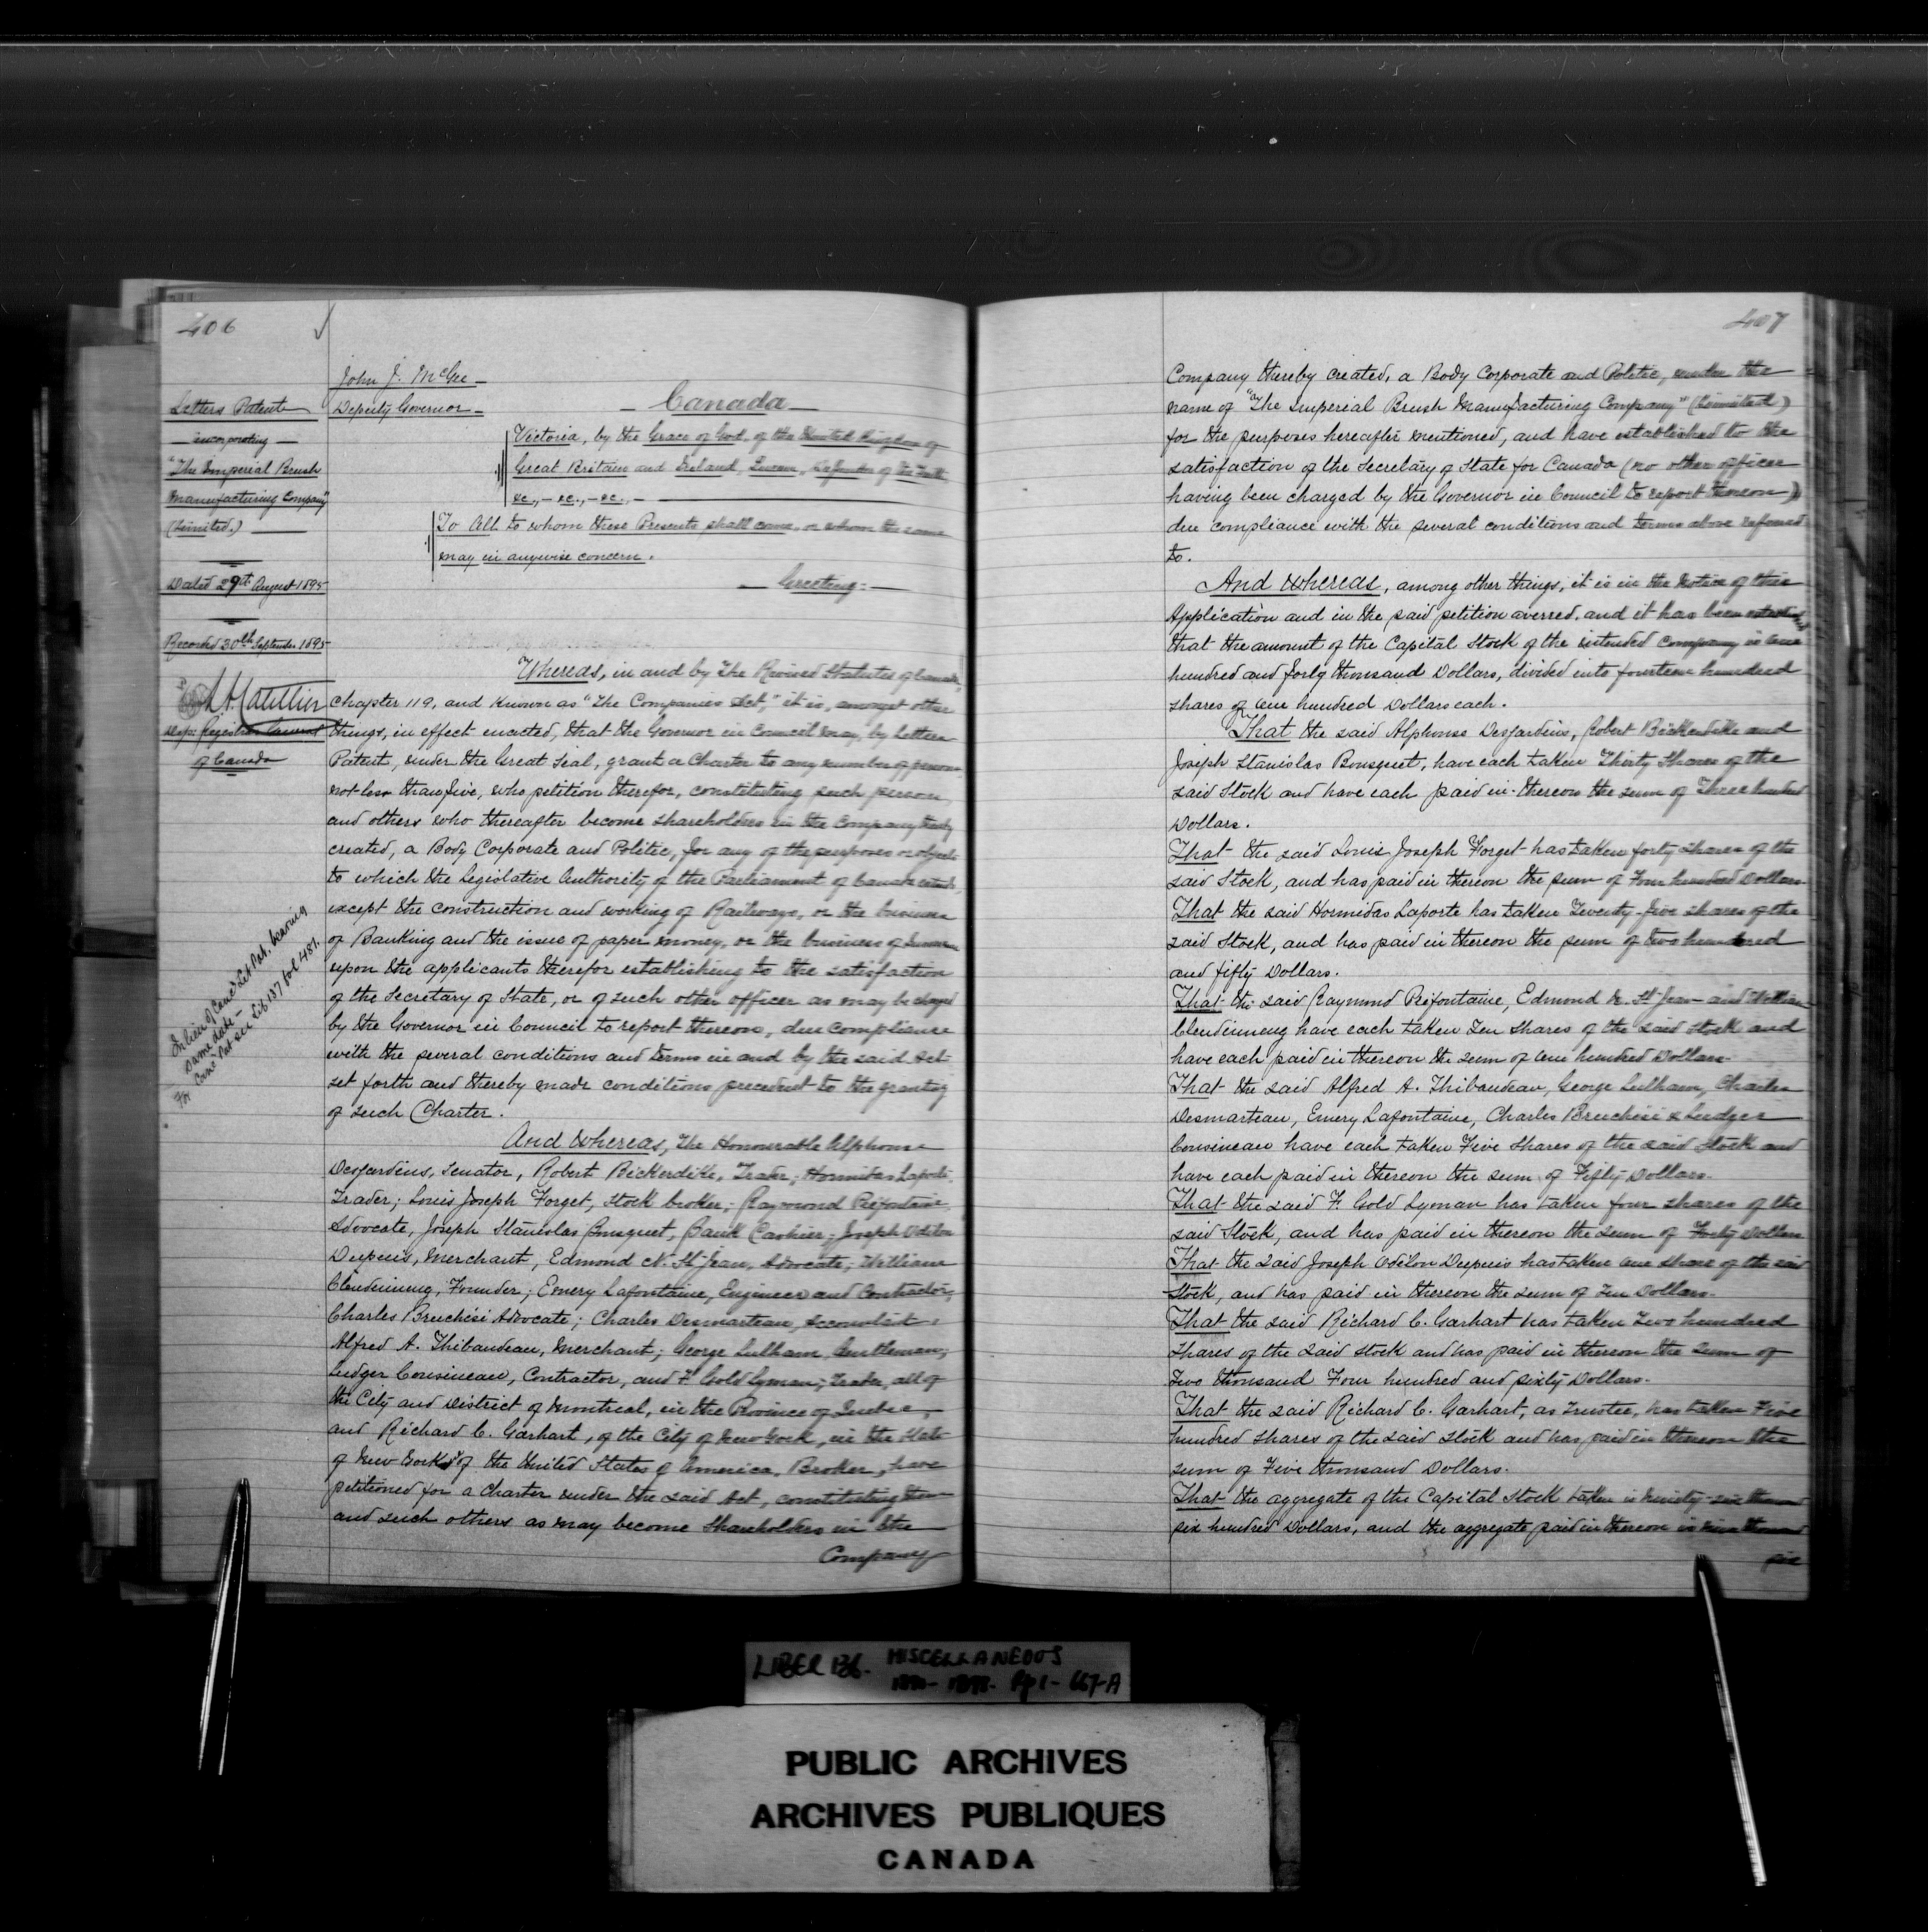 406
John J. McGee
Deputy Governor
Letters Patent
incorporating
"The Imperial Brush
Manufacturing Company"
(Limited.)
Dated 29th August 1895
Recorded 30th September 1895
Dep: Registrar General
of Canada
In lieu of Canc'd Let Pat. bearing
same date -
For Canc'd Pat see Lib 137 fol 481.
Canada
Victoria, by the Grace of God, of the United Kingdom of
Great Britain and Ireland, Queen, Defender of the Faith
&c., - &c., - &c., -
To All to whom these Presents shall come, or whom the same
may in anywise concern.
Greeting:
Whereas, in and by The Revised Statutes of Canada,
Chapter 119, and known as "The Companies Act," it is, amongst other
things, in effect enacted, that the Governor in Council may, by Letters
Patent, under the Great Seal, grant a Charter to any number of persons
not less than five, who petition therefor, constituting such persons,
and others who thereafter become shareholders in the Company thereby
created, a Body Corporate and Politic, for any of the purposes or objects
to which the Legislative Authority of the Parliament of Canada extends
except the construction and working of Railways, or the business
of Banking and the issue of paper money, or the business of Insurance
upon the applicants therefor establishing to the satisfaction
of the Secretary of State, or of such other officer as may be charged
by the Governor in Council to report thereon, due compliance
with the several conditions and terms in and by the said Act
set forth and thereby made conditions precedent to the granting
of such Charter.
And Whereas, The Honourable Alphonse
Desjardins, Senator, Robert Bickerdike, Trader; Hormidas Laporte,
Trader; Louis Joseph Forget, Stock broker; Raymond Préfontaine,
Advocate, Joseph Stanislas Bousquet, Bank Cashier; Joseph Odilon
Dupuis, Merchant, Edmond N. St Jean, Advocate; William
Clendinneng, Founder; Emery Lafontaine, Engineer and Contractor;
Charles Bruchési Advocate; Charles Desmarteau, Accountant;
Alfred A. Thibaudeau, Merchant; George Lulham, Gentleman;
Ludger Cousineau, Contractor, and F. Gold Lyman; Trader, all of
the City and District of Montreal, in the Province of Quebec,
and Richard C. Garhart, of the City of New York, in the State
of New York, of the United States of America, Broker, have
petitioned for a Charter under the said Act, constituting them
and such others as may become Shareholders in the
Company
407
Company thereby created, a Body Corporate and Politic, under the
name of "The Imperial Brush Manufacturing Company" (Limited)
for the purposes hereafter mentioned, and have established to the
satisfaction of the Secretary of State for Canada (no other officer
having been charged by the Governor in Council to report thereon)
due compliance with the several conditions and terms above referred
to.
And Whereas, among other things, it is in the Notice of their
Application and in the said petition averred, and it has been established
that the amount of the Capital Stock of the intended Company is One
hundred and forty thousand Dollars, divided into fourteen hundred
shares of One hundred Dollars each.
That the said Alphonse Desjardins, Robert Bickerdike and
Joseph Stanislas Bousquet, have each taken Thirty Shares of the
said Stock and have each paid in thereon the sum of Three hundred
Dollars.
That the said Louis Joseph Forget has taken forty shares of the
said Stock, and has paid in thereon the sum of Four hundred Dollars
That the said Hormidas Laporte has taken Twenty-five shares of the
said Stock, and has paid in thereon the sum of two hundred
and fifty Dollars.
That the said Raymond Préfontaine, Edmond N. St Jean and William
Clendinneng have each taken Ten Shares of the said Stock and
have each paid in thereon the sum of One hundred Dollars
That the said Alfred A. Thibaudeau, George Lulham, Charles
Desmarteau, Emery Lafontaine, Charles Bruchési & Ludger
Cousineau have each taken Five Shares of the said Stock and
have each paid in thereon the sum of Fifty Dollars.
That the said F. Gold Lyman has taken four shares of the
said Stock, and has paid in thereon the sum of Forty Dollars
That the said Joseph Odilon Dupuis has taken One Share of the said
Stock, and has paid in thereon the sum of Ten Dollars.
That the said Richard C. Garhart has taken Two hundred
Shares of the said Stock and has paid in thereon the sum of
Two thousand Four hundred and sixty Dollars.
That the said Richard C. Garhart, as Trustee, has taken Five
hundred shares of the said Stock and has paid in thereon the
sum of Five thousand Dollars.
That the aggregate of the Capital Stock taken is Ninety-six thousand
six hundred Dollars, and the aggregate paid in thereon is nine thousand
six
LIBER 136. MISCELLANEOUS
Pp 1- 667-A
PUBLIC ARCHIVES
ARCHIVES PUBLIQUES
CANADA